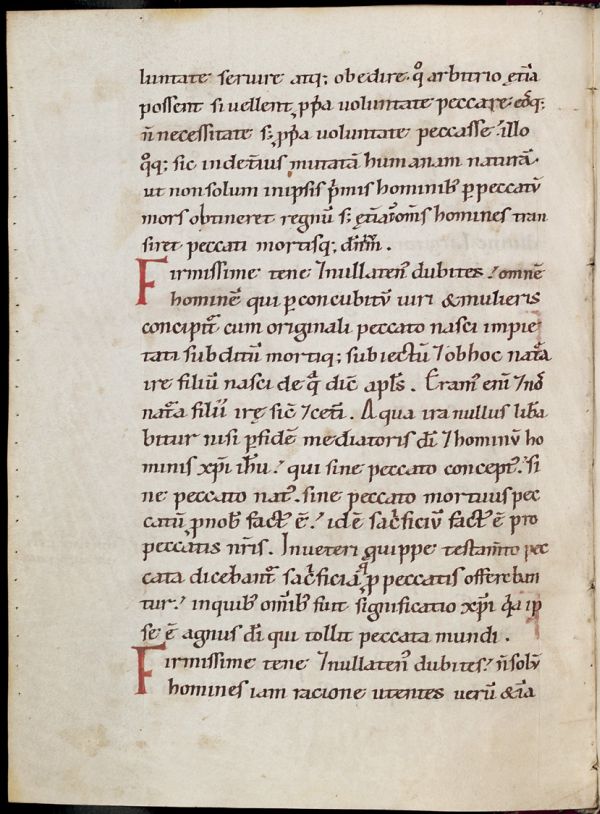 luntate seruire atq; obedire. qͦ arbitrio ętiā
possent si uellent ꝓpͥa uoluntate peccare. eōq;
n̄ necessitate s; ꝓpͥa uoluntate peccasse. illo
qͦq; sic in deteriᷤ mutatā humanam naturā.
ut non solum in ipsis pͥmis hominibꝰ ꝑ peccatū
mors obtineret regnū s; ętiā in om̄s homines tran
siret peccati mortisq; dn̄iū.
Firmissime tene ⁊nullatenꝰ dubites. omnē
hominē qui ꝑ concubitū uiri &mulieris
concipit᷑ cum originali peccato nasci impie
tati subditū mortiq; subiectū ⁊ob hoc nat᷑a
ire filiū nasci de qͣ dic̄ apl̄s. Eram᷒ enī ⁊nos
nat᷑a filii irę sic̄ ⁊cet̄i. A qua ira nullus liƀa
bitur nisi ꝑ fidē mediatoris dī ⁊hominū ho
minis xp̄i ih̄u. qui sine peccato concept᷒. si
ne peccato nat᷒. sine peccato mortuus pec
catū ꝓ nob̄ fact᷒ ē. id ē sacͥficiū fact᷒ ē pro
peccatis nr̄is. In ueteri quippe testam̄to pec
cata dicebant᷑ sacͥficia. q̄ ꝓ peccatis offereban
tur. in quibꝰ om̄ibꝰ fuit significatio xp̄i qͥa ip
se ē agnus dī qui tollit peccata mundi.
Firmissime tene ⁊nullatenꝰ dubites. n̄ solū
homines iam racione utentes uerū &iā